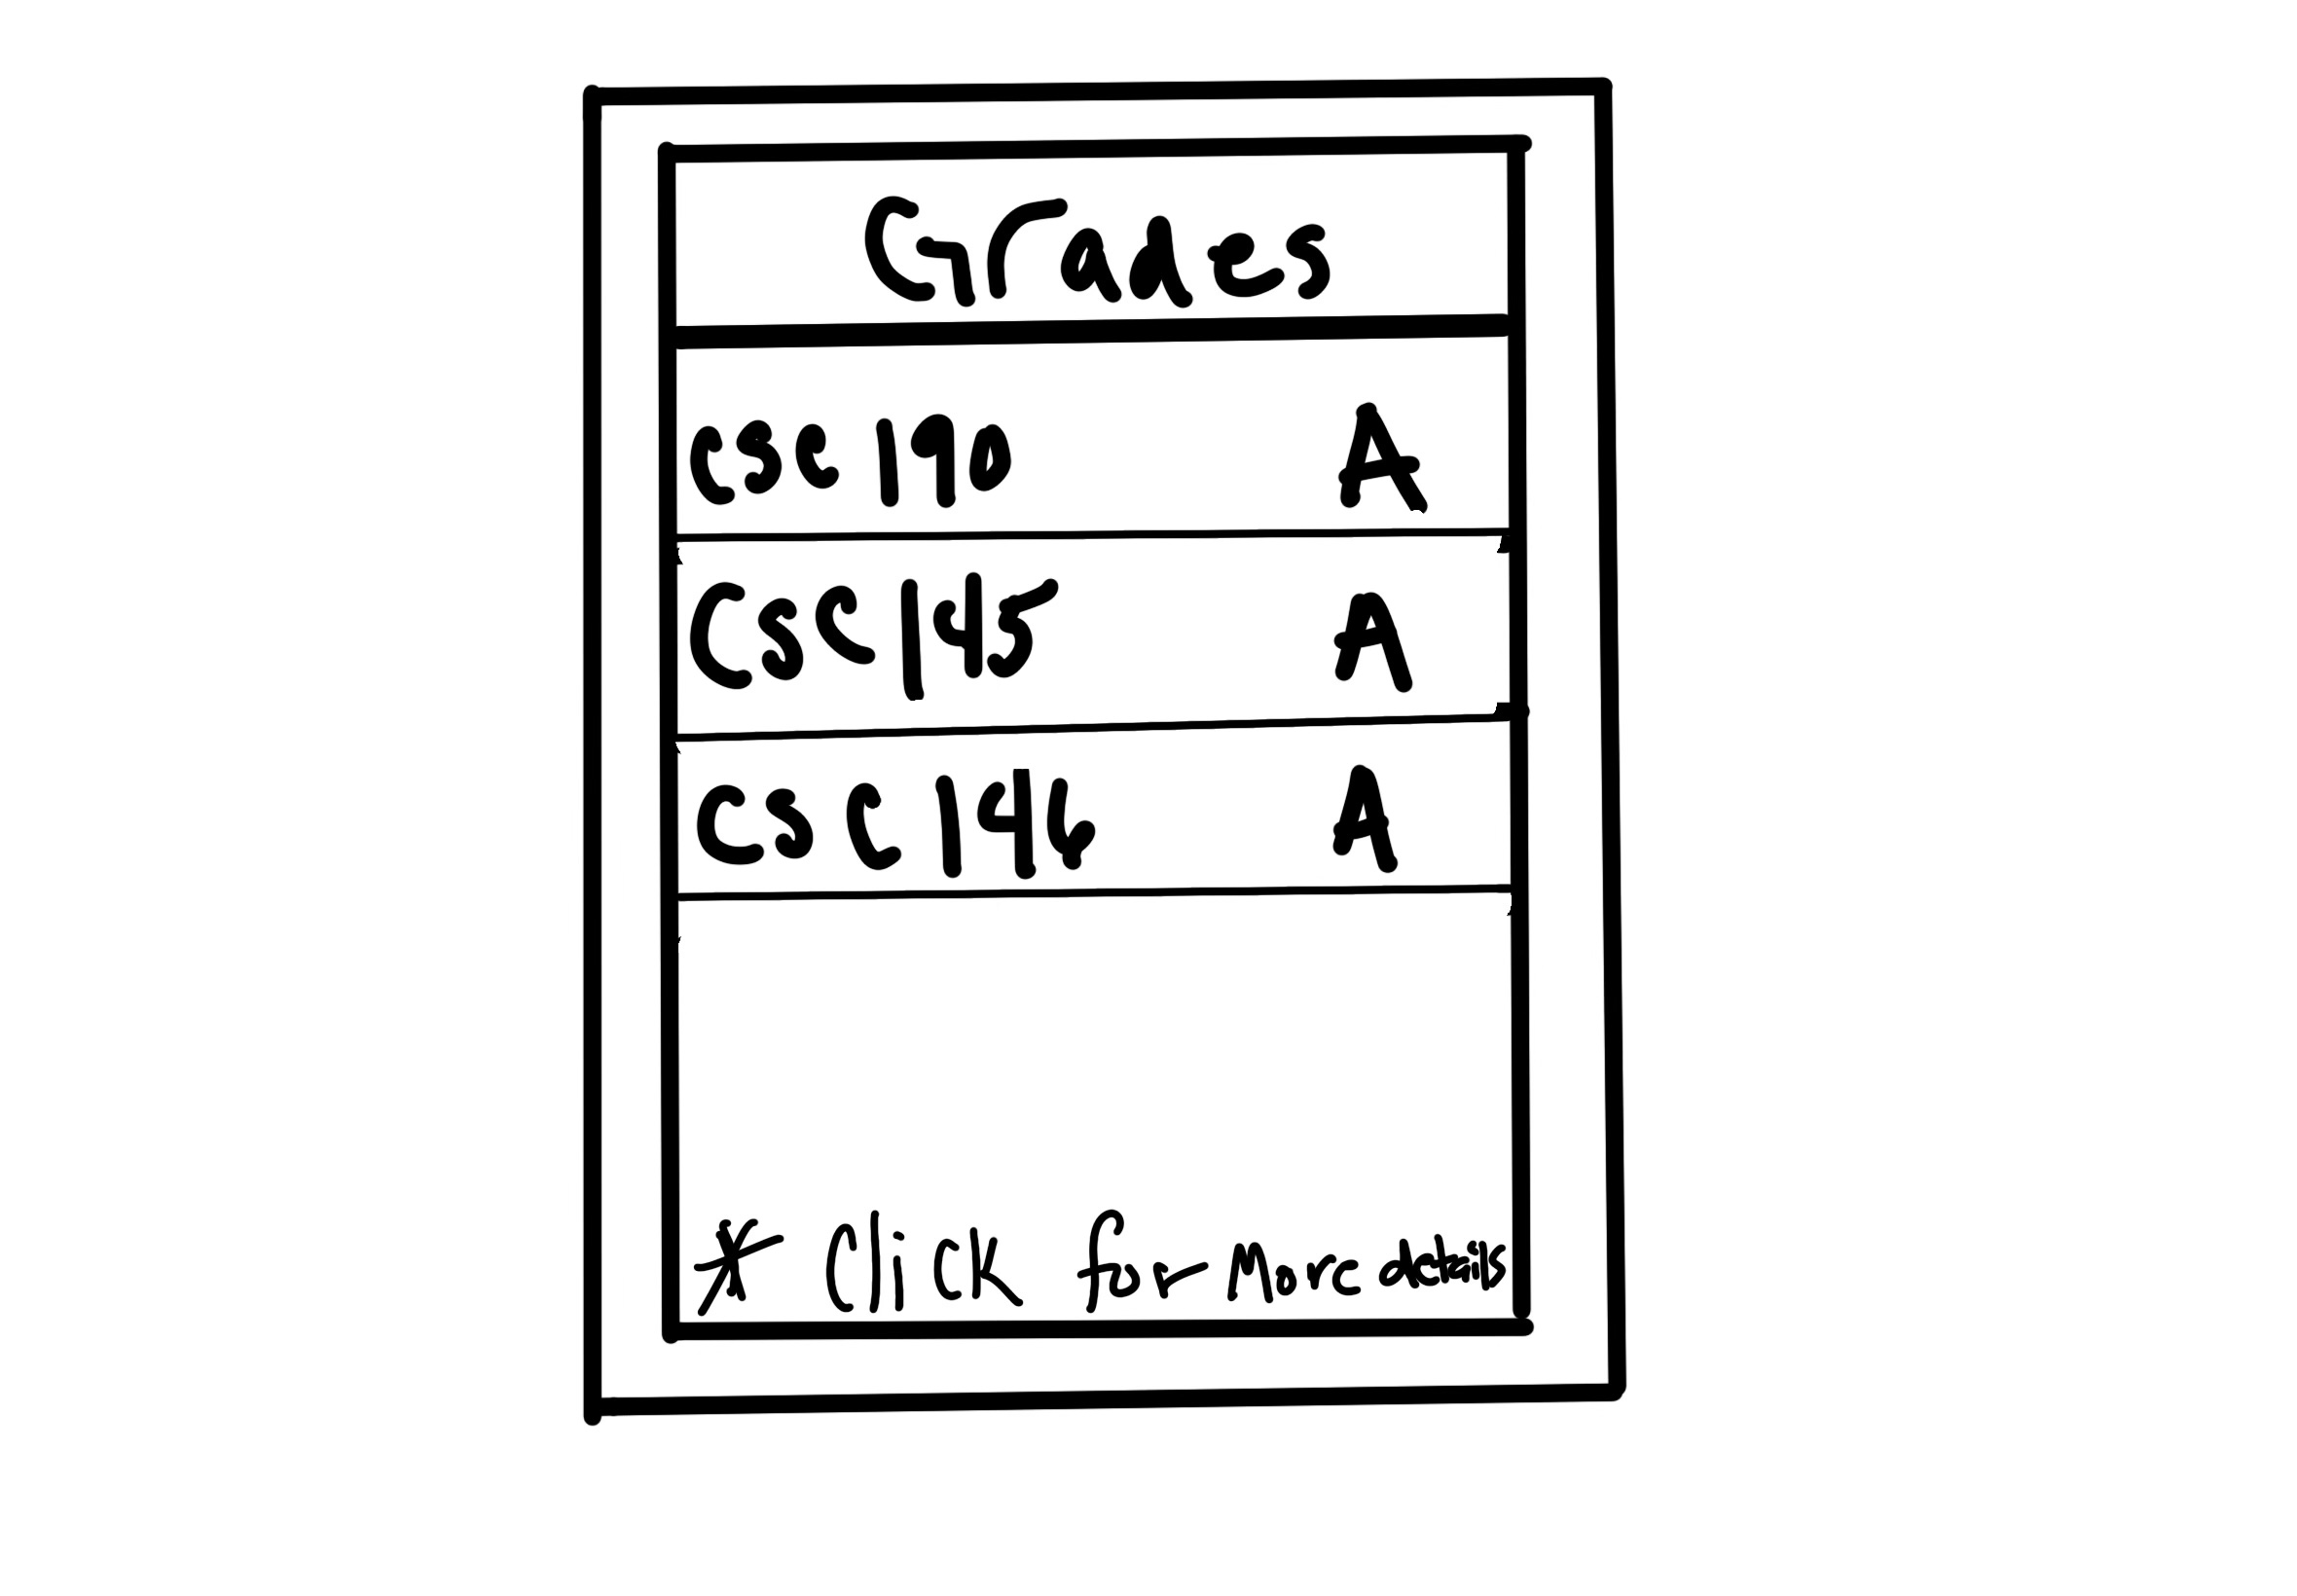 Grades
CSC 190 A
CSC 145 A
CSC 146 A
* Click for More details